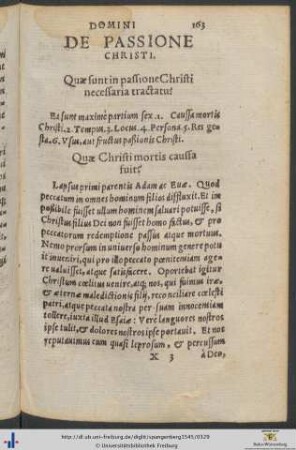 DOMINI 163
DE PASSIONE
CHRISTI.
Quæ sunt in passione Christi
necessaria tractatu?
Ea sunt maximè partium sex. 1. Caussa mortis
Christi. 2. Tempus. 3. Locus. 4. Persona. 5. Res ge
sta. 6. Vsus, aut fructus passionis Christi.
Quæ Christi mortis caussa
fuit?
Lapsus primi parentis Adam ac Euæ. Quod
peccatum in omnes hominum filios diffluxit. Et im
possibile fuisset ullum hominem saluari potuisse, si
Christus filius Dei non fuisset homo factus, & pro
peccatorum redemptione passus atque mortuus.
Nemo prorsum in uniuerso hominum genere potu
it inueniri, qui pro illo peccato pœnitentiam age
re ualuisset, atque satisfacere. Oportebat igitur
Christum cœlitus uenire, atq; nos, qui fuimus iræ,
& æternæ maledictionis filij, reconciliare cœlesti
patri, atque peccata nostra per suam innocentiam
tollere, iuxta illud Esaiæ: Verè languores nostros
ipse tulit, & dolores nostros ipse portauit. Et nos
reputauimus eum quasi leprosum, & percussum
X 3 à Deo,
http://dl.ub.uni-freiburg.de/diglit/spangenberg1545/0329
Universitätsbibliothek Freiburg